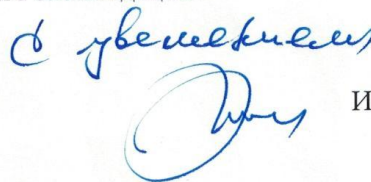 С увемением,
И